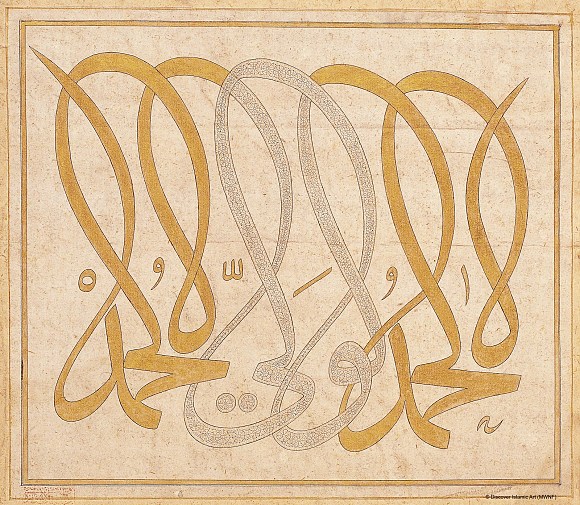 الحمد لولي الحمد
© Discover Islamic Art (MWNF)